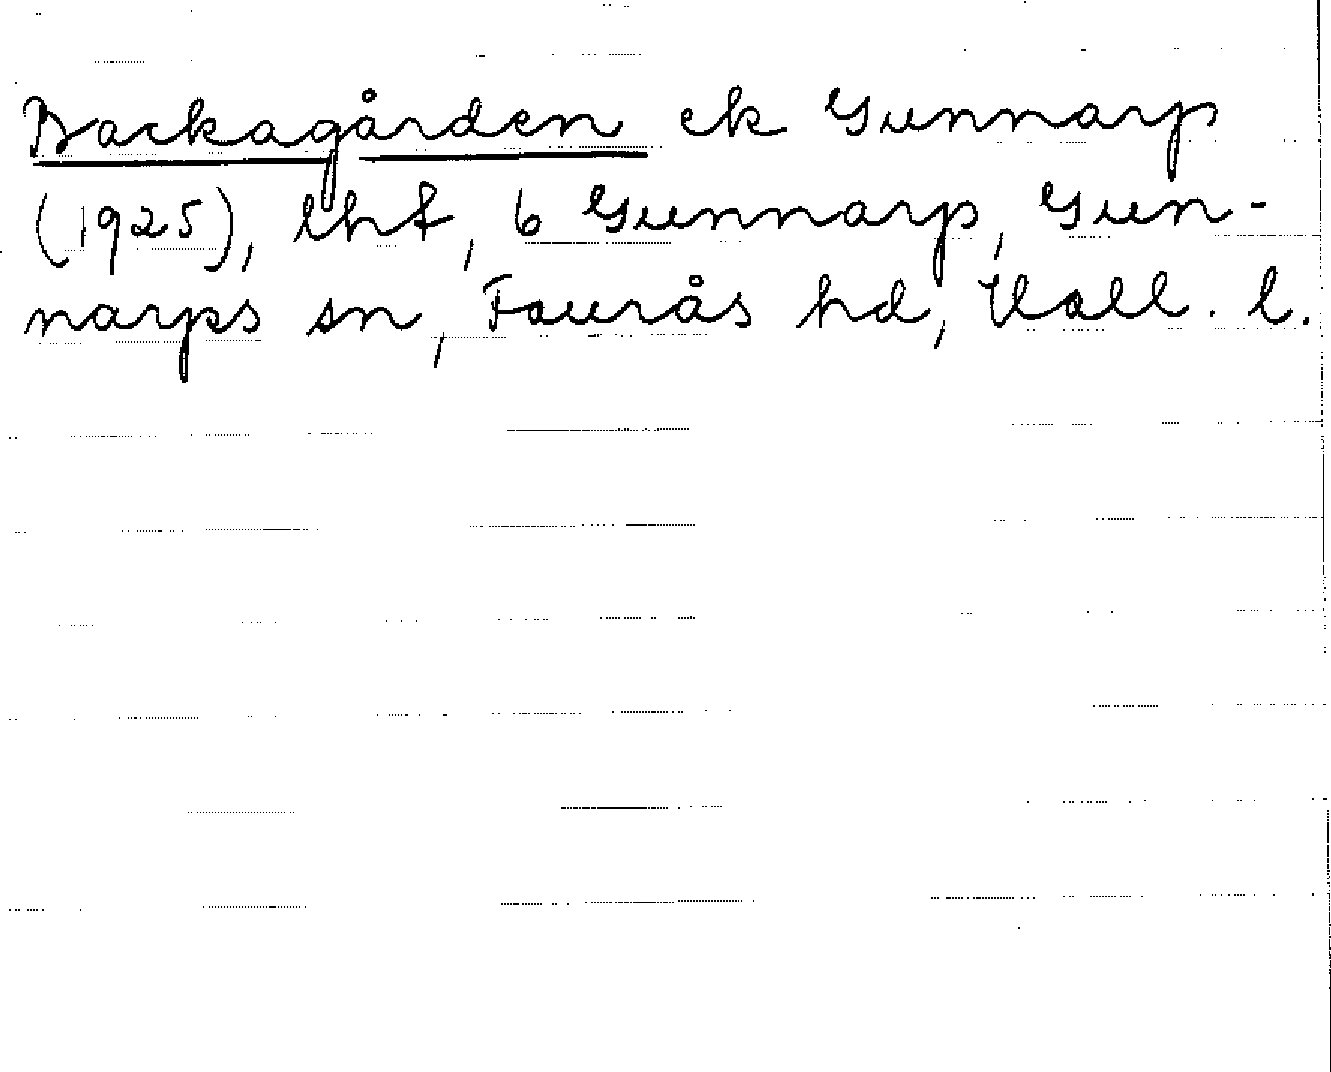 Backagården ek Gunnarp
(1925), lht, 6 Gunnarp, Gun-
narps sn, Faurås hd, Hall. l.